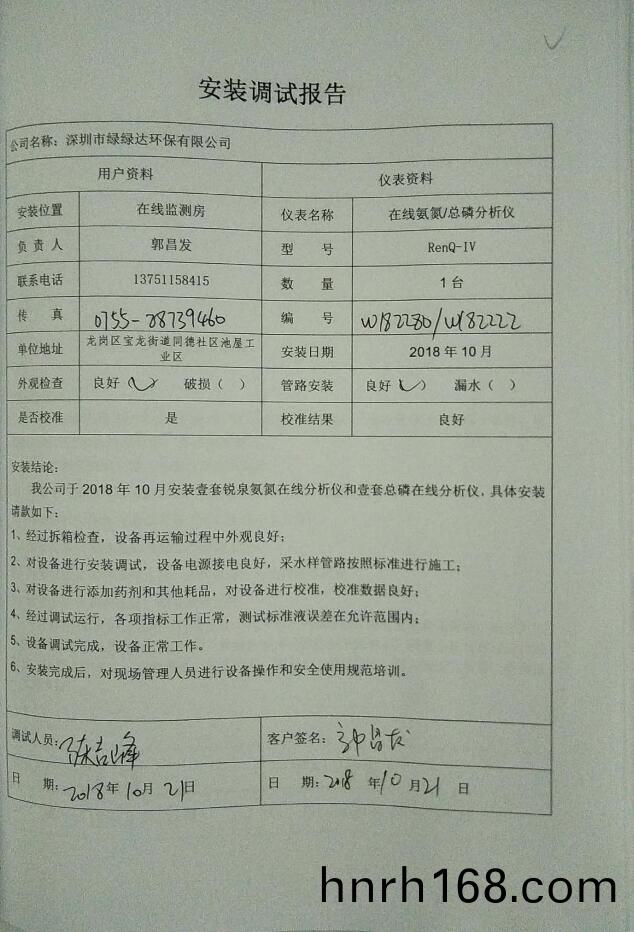 安装调试报告
公司名称：深圳市绿绿达环保有限公司
用户资料 仪表资料
安装位置 在线监测房 仪表名称 在线氨氮/总磷分析仪
负责人 郭昌发 型 号 RenQ-IV
联系电话 13751158415 数 量 1台
传 真 0755-28739460 编 号 W182280/W182222
单位地址 龙岗区宝龙街道同德社区池屋工
业区 安装日期 2018年10月
外观检查 良好（✓） 破损（ ） 管路安装 良好（✓） 漏水（ ）
是否校准 是 校准结果 良好
安装结论：
我公司于2018年10月安装壹套锐泉氨氮在线分析仪和壹套总磷在线分析仪，具体安装
请款如下：
1、经过拆箱检查，设备再运输过程中外观良好；
2、对设备进行安装调试，设备电源接电良好，采水样管路按照标准进行施工；
3、对设备进行添加药剂和其他耗品，对设备进行校准，校准数据良好；
4、经过调试运行，各项指标工作正常，测试标准液误差在允许范围内；
5、设备调试完成，设备正常工作。
6、安装完成后，对现场管理人员进行设备操作和安全使用规范培训。
调试人员：陈吉峰 客户签名：
日 期：2018年10月21日 日 期：2018年10月21日
hnrh168.com